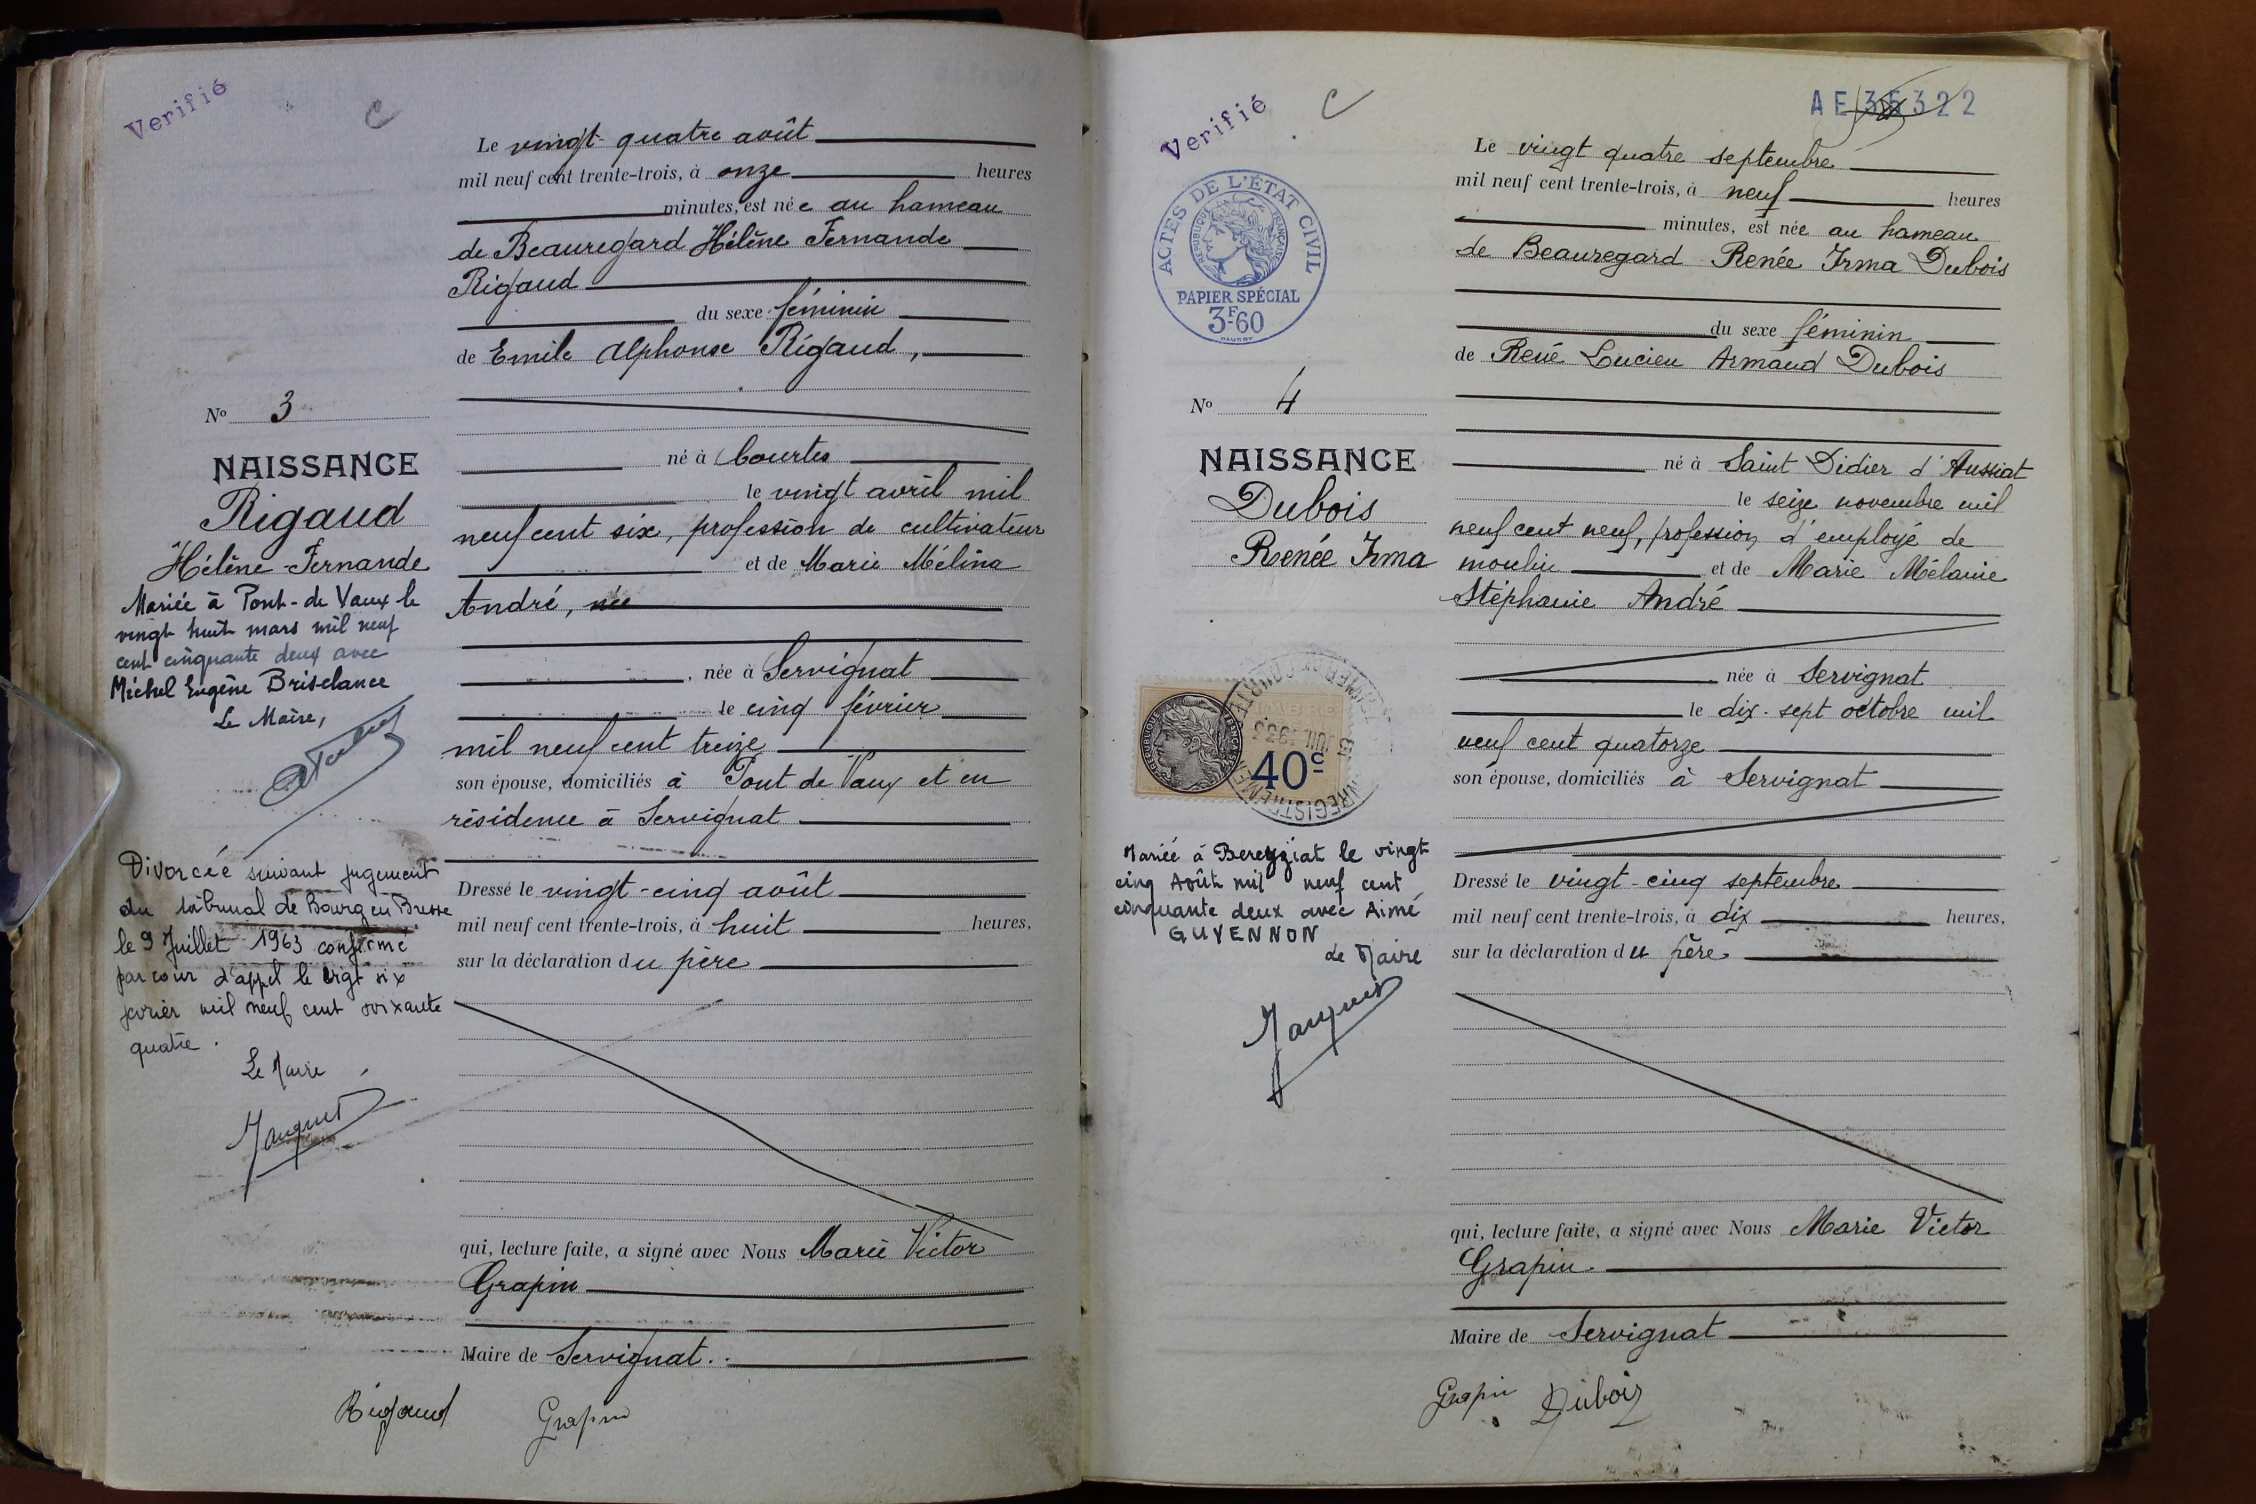 Verifié
C
Le vingt-quatre août
mil neuf cent trente-trois, à onze heures
minutes, est née au hameau
de Beauregard Hélène Fernande
Rigaud
du sexe féminin
de Emile Alphonse Rigaud,
né à Courtes
le vingt avril mil
neuf cent six, profession de cultivateur
et de Marie Mélina
André, née
, née à Servignat
le cinq février
mil neuf cent treize
son épouse, domiciliés à Pont de Vaux et en
résidence à Servignat
Dressé le vingt-cinq août
mil neuf cent trente-trois, à huit heures,
sur la déclaration du père
qui, lecture faite, a signé avec Nous Marie Victor
Grapin
Maire de Servignat.
Rigaud Grapin
No 3
NAISSANCE
Rigaud
Hélène Fernande
Mariée à Pont-de Vaux le
vingt huit mars mil neuf
cent cinquante deux avec
Michel Eugène Briselance
Le Maire,
Divorcée suivant jugement
du tribunal de Bourg en Bresse
le 9 Juillet 1963 confirmé
par cour d'appel le vigt six
mil neuf cent soixante
quatre.
Le Maire
Verifié
C
AE 35322
ACTES DE L'ÉTAT CIVIL
RÉPUBLIQUE FRANÇAISE
PAPIER SPÉCIAL
3F60
Le vingt quatre septembre
mil neuf cent trente-trois, à neuf heures
minutes, est née au hameau
de Beauregard Renée Irma Dubois
du sexe féminin
de René Lucien Armand Dubois
né à Saint Didier d'Aussiat
le seize novembre mil
neuf cent neuf, profession d'employé de
moulin et de Marie Mélanie
Stéphanie André
née à Servignat
le dix-sept octobre mil
neuf cent quatorze
son épouse, domiciliés à Servignat
Dressé le vingt-cinq septembre
mil neuf cent trente-trois, à dix heures,
sur la déclaration du père
qui, lecture faite, a signé avec Nous Marie Victor
Grapin.
Maire de Servignat
Grapin Dubois
No 4
NAISSANCE
Dubois
Renée Irma
40c
Mariée à Bereyziat le vingt
cinq Août mil neuf cent
cinquante deux avec Aimé
GUYENNON
Le Maire